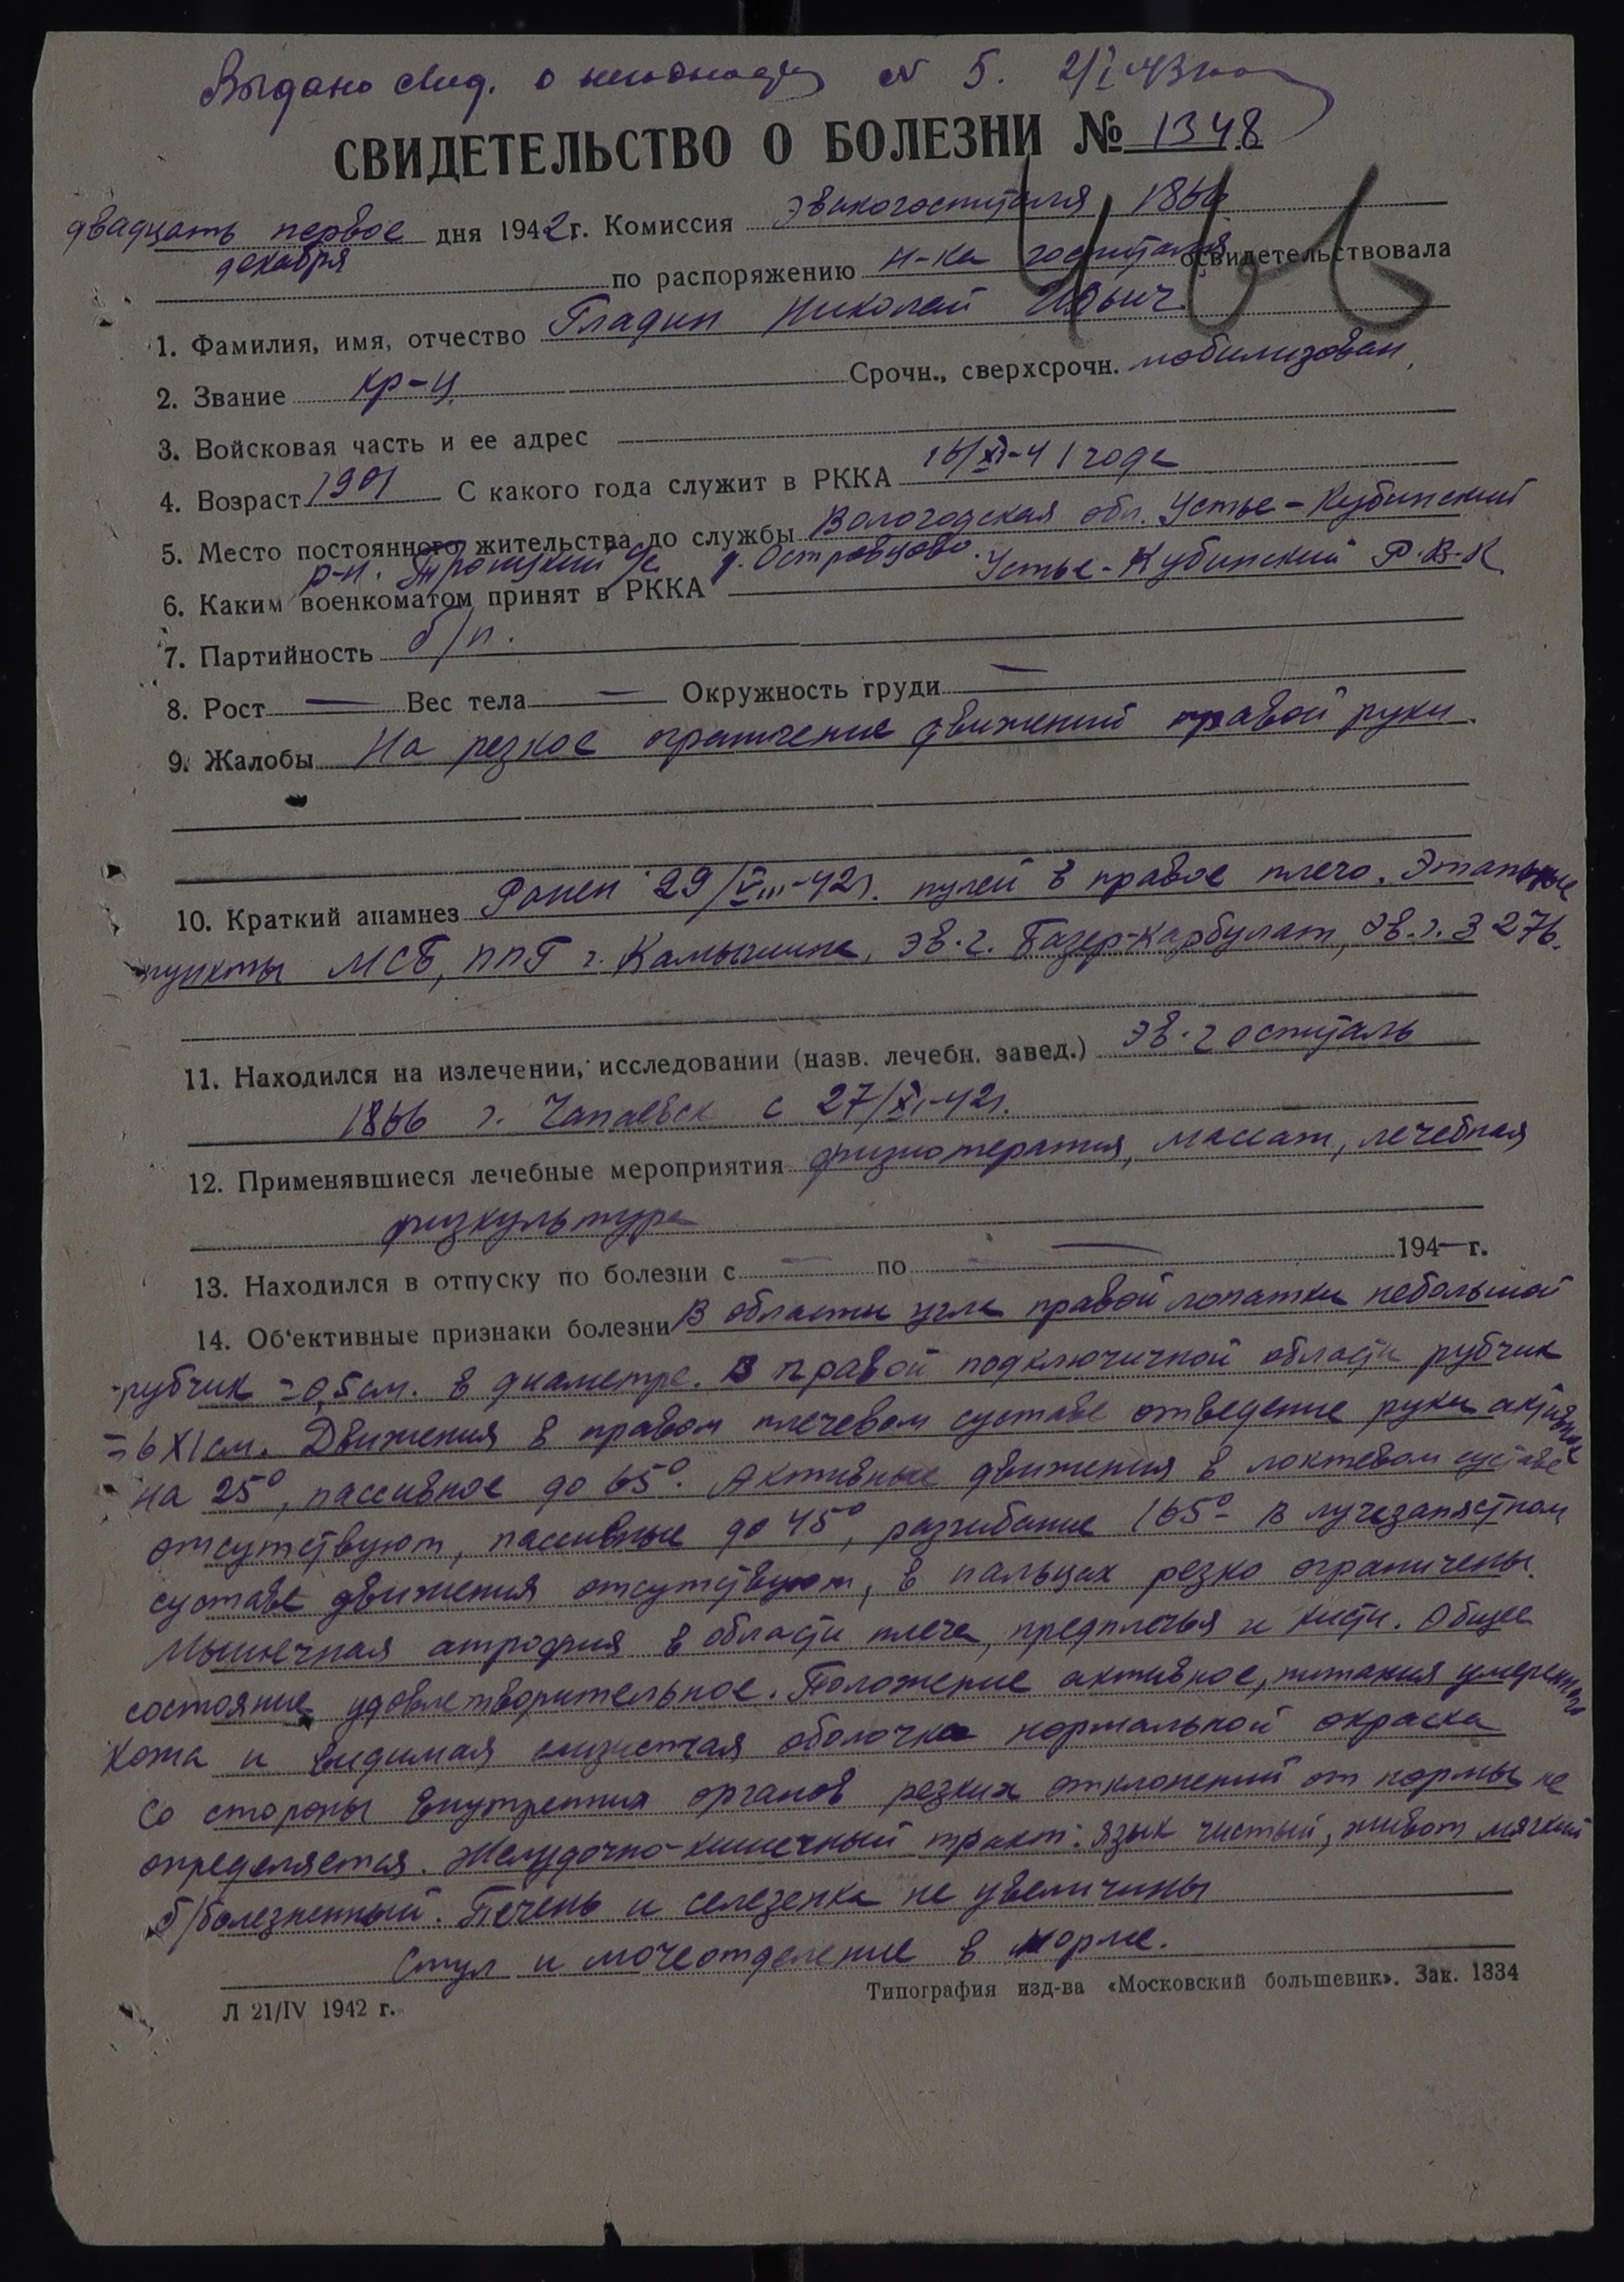 Выдано свид. о № 5. 2/I 43 года
СВИДЕТЕЛЬСТВО О БОЛЕЗНИ № 1348
двадцать первое дня 1942 г. Комиссия эвакогоспиталя 1866
декабря по распоряжению н-ка госпиталя освидетельствовала
1. Фамилия, имя, отчество Гладин Николай Ильич
2. Звание кр-ц Срочн., сверхсрочн. мобилизован,
3. Войсковая часть и ее адрес
4. Возраст 1901 С какого года служит в РККА 16/XI-41 года
5. Место постоянного жительства до службы Вологодская обл. Устье-Кубинский
р-н. Троицкий с/с д. Островцово.
6. Каким военкоматом принят в РККА Устье-Кубинский Р.В.К
7. Партийность б/п.
8. Рост — Вес тела — Окружность груди —
9. Жалобы На резкое ограничение движений правой руки.
10. Краткий анамнез Ранен 29/VIII-42г. пулей в правое плечо. Этапные
пункты МСБ, ППГ г. Камышина, эв.г. Базар-Карбулат, эв.г. 3276.
11. Находился на излечении, исследовании (назв. лечебн. завед.) эв.госпиталь
1866 г. Чапаевск с 27/XI-42г.
12. Применявшиеся лечебные мероприятия физиотерапия, массаж, лечебная
физкультура
13. Находился в отпуску по болезни с — по — 194— г.
14. Об'ективные признаки болезни В области угла правой лопатки небольшой
рубчик =0,5см. в диаметре. В правой подключичной области рубчик
=6X1см. Движения в правом плечевом суставе отведение руки активное
на 25°, пассивное до 65°. Активные движения в локтевом суставе
отсутствуют, пассивные до 45°, разгибание 165°- В лучезапястном
суставе движения отсутствуют, в пальцах резко ограничены.
Мышечная атрофия в области плеча, предплечья и кисти. Общее
состояние удовлетворительное. Положение активное, питания умеренного
Кожа и видимая слизистая оболочка нормальной окраска
Со стороны внутренних органов резких отклонений от нормы не
определяется. Желудочно-кишечный тракт: язык чистый, живот мягкий
б/болезненный. Печень и селезенка не увеличины
Стул и мочеотделение в норме.
Л 21/IV 1942 г.
Типография изд-ва «Московский большевик». Зак. 1334